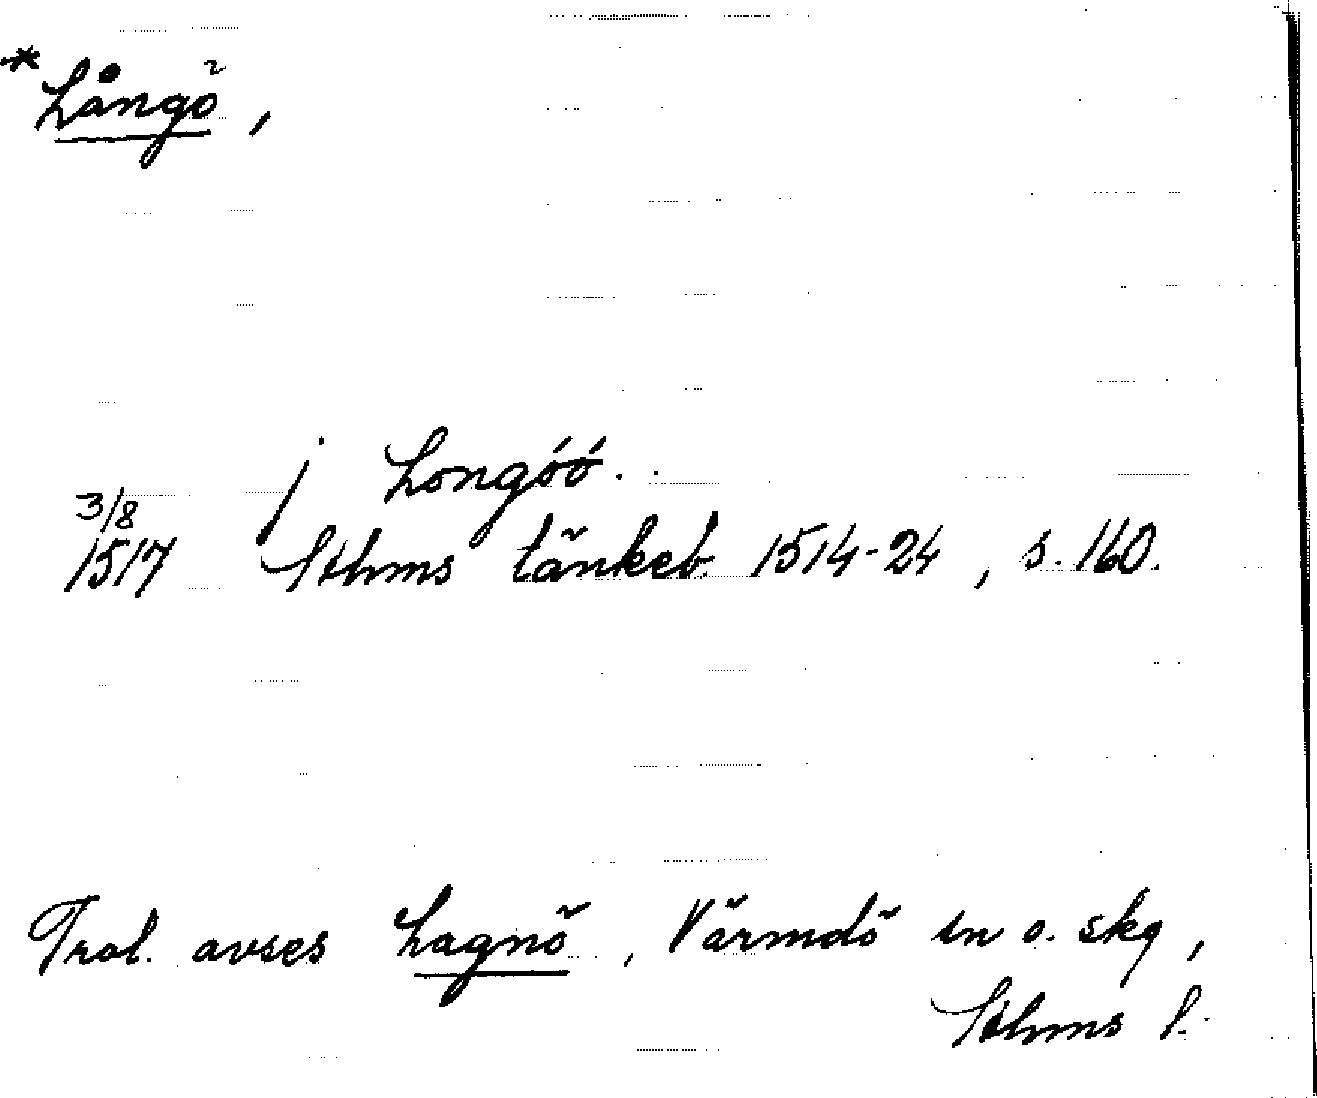 *Långö,
j Longöö.
3/8
1517 Sthms tänkeb. 1514-24, s. 160.
Trol. avses Lagnö, Värmdö sn o. skg,
Sthms l.